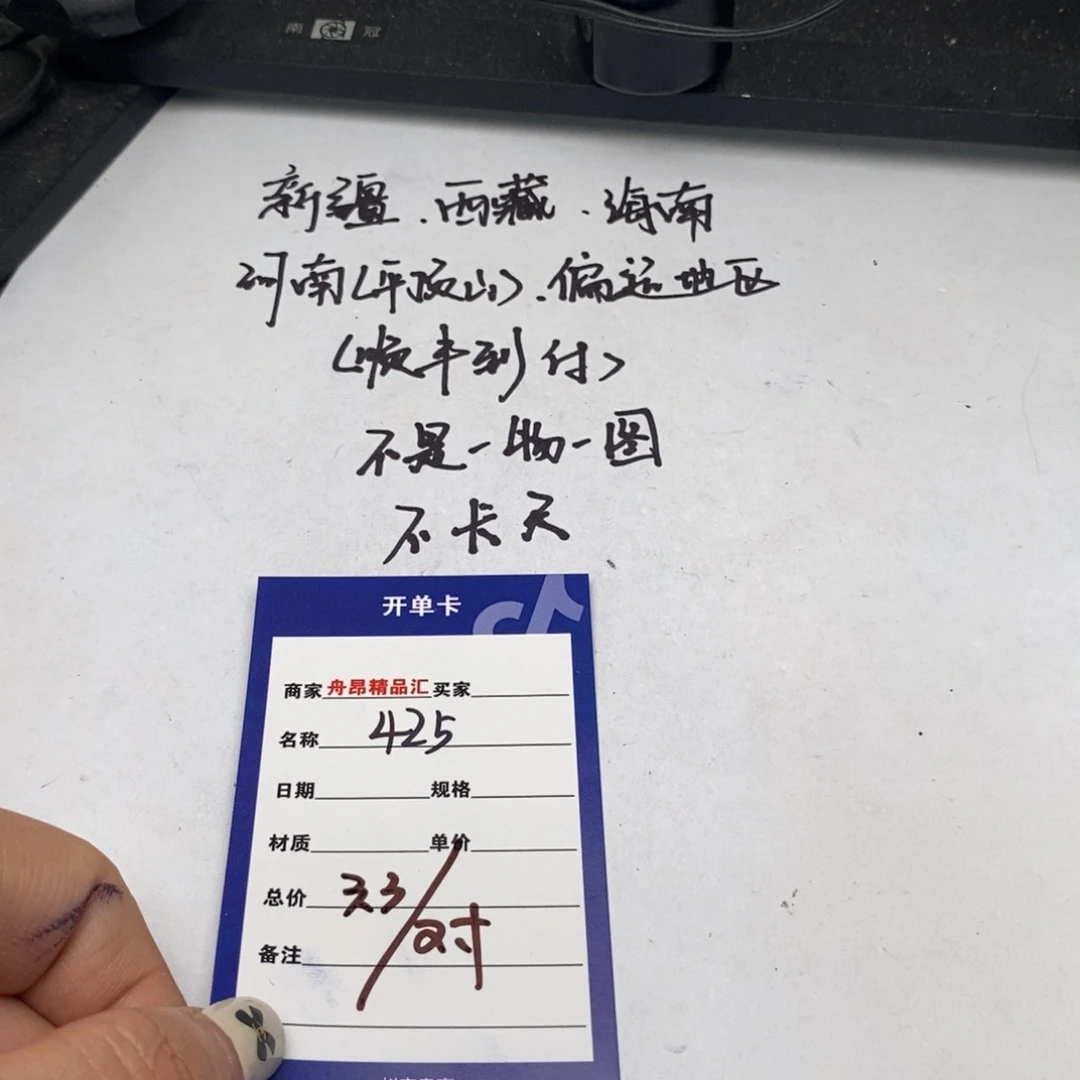 南 冠
新疆.西藏.海南
河南(平顶山).偏远地区
(顺丰到付)
不是一物一图
不卡天
开单卡
商家舟昂精品汇买家
名称 425
日期 规格
材质 单价
总价 33/对
备注